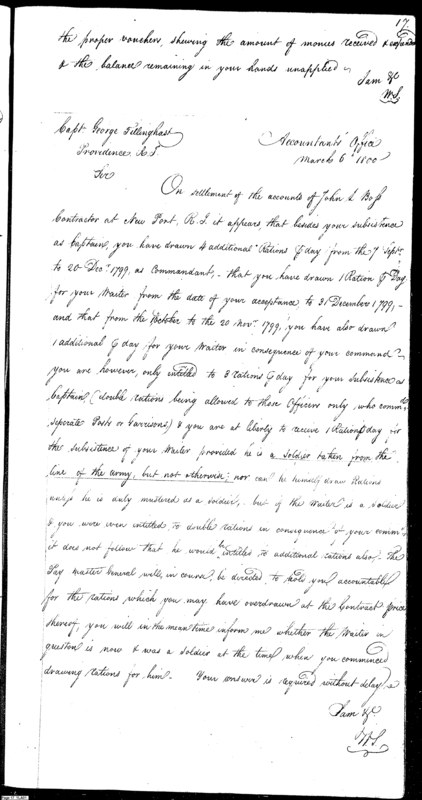 17
the proper vouchers, shewing the amount of monies received & expended
& the balance remaining in your hands unapplied ~
I am &c
W.S.
Capt. George Tillinghast
Providence R.I.
Accountants Office
March 6th 1800
Sir
On settlement of the accounts of John L Boss
Contractor at New Port, R.I. it appears, that besides your subsistence
as Captain, you have drawn 4 additional Rations ⅌ day from the 7 Septr.
to 20 Decr. 1799, as Commandant, - that you have drawn 1 Ration ⅌ Day
for your Waiter from the date of your acceptance to 31 December 1799, -
and that from the October to the 20 Novr. 1799, you have also drawn
1 additional ⅌ day for your Waiter in consequence of your command -
you are, however, only intitled to 3 rations ⅌ day for your Subsistence as
Captain, (double rations being allowed to those Officers only, who commd.
seperate Posts or Garrisons) & you are at liberty to receive 1 Ration ⅌ day for
the subsistence of your Waiter provided he is a Soldier taken from the
line of the army, but not otherwise; nor can he himself draw Rations
unless he is duly mustered as a soldier, - but if the Waiter is a Soldier
& you were even intitled to double rations in consequence of your commd.
it does not follow that he would be intitled to additional rations also. The
Pay Master General will, in course, be directed to hold you accountable
for the rations which you may have overdrawn at the Contract price
thereof, you will in the mean time inform me whether the Waiter in
question is now & was a soldier at the time when you commenced
drawing rations for him. Your answer is required without delay
I am &c.
W.S.